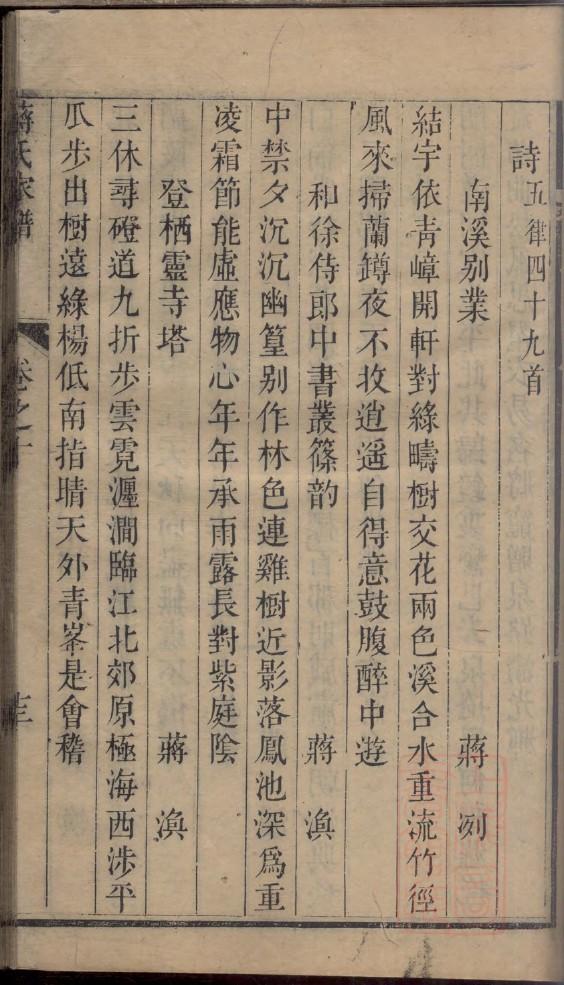 詩五律四十九首
南溪別業　蔣洌
結宇依青嶂開軒對綠疇樹交花兩色溪合水重流竹徑
風來掃蘭罇夜不收逍遥自得意鼓腹醉中遊
和徐侍郎中書叢篠韵　蔣渙
中禁夕沉沉幽篁別作林色連雞樹近影落鳳池深爲重
凌霜節能虛應物心年年承雨露長對紫庭陰
登栖靈寺塔　蔣渙
三休尋磴道九折步雲霓瀍澗臨江北郊原極海西涉平
瓜步出樹遠綠楊低南指晴天外青峯是會稽
蔣氏家譜　卷之十　十三